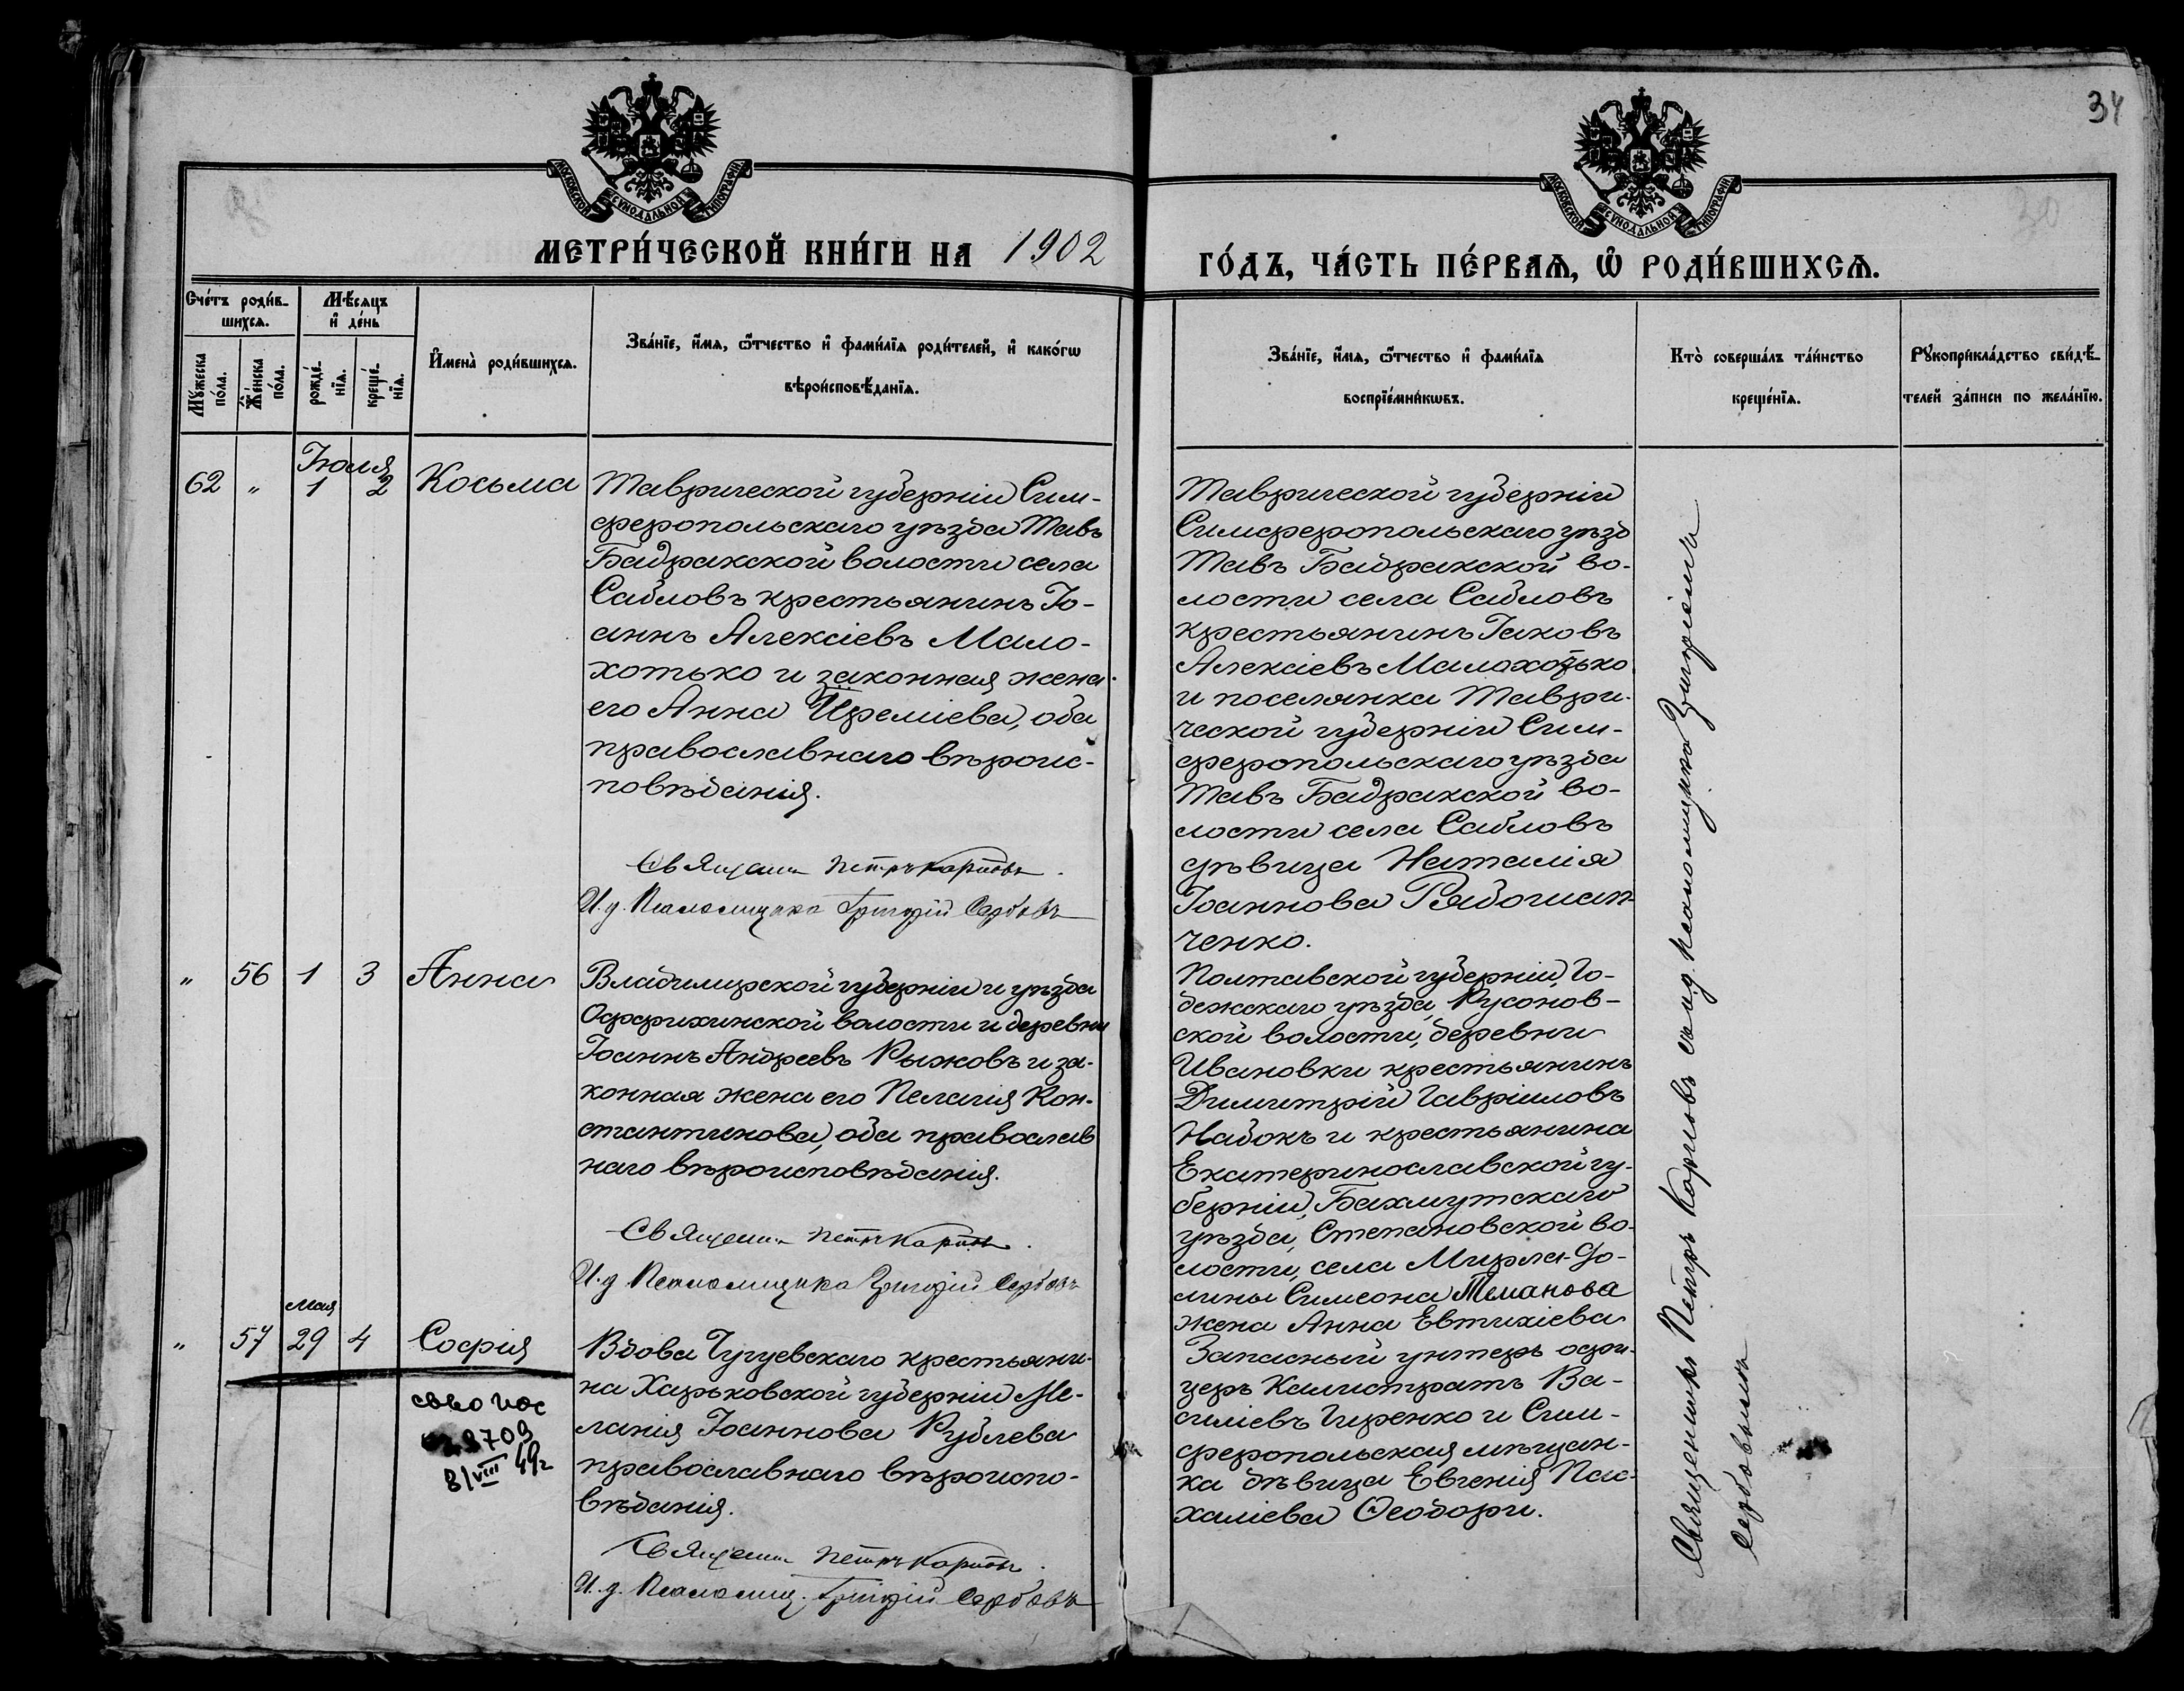 34
МОСКОВСКОЙ СѴНОДАЛЬНОЙ ТИПОГРАФІИ
МОСКОВСКОЙ СѴНОДАЛЬНОЙ ТИПОГРАФІИ
МЕТРИ́ЧЕСКОЙ КНИ́ГИ НА 1902
ГО́ДЪ, ЧА́СТЬ ПЕ́РВАѦ, Ѡ҆ РОДИ́ВШИХСѦ.
Сче́тъ роди́в-
шихсѧ.
Мꙋ́жеска
по́ла.
Же́нска
по́ла.
Мѣ́сѧцъ
и҆ де́нь
рожде́-
нїѧ.
креще́-
нїѧ.
И҆мена̀ роди́вшихсѧ.
Зва́нїе, и҆́мѧ, ѻ҆́тчество и҆ фами́лїѧ роди́телей, и҆ како́гѡ
вѣроисповѣ́данїѧ.
Зва́нїе, и҆́мѧ, ѻ҆́тчество и҆ фами́лїѧ
воспрїе́мникѡвъ.
Кто̀ соверша́лъ та́инство
креще́нїѧ.
Рꙋкоприкла́дство свидѣ́-
телей за́писи по жела́нїю.
Іюля
62 " 1 2 Косьма
Таврической губерніи Сим-
феропольскаго уѣзда Тавъ
Бадракской волости села
Сабловъ крестьянинъ Іо-
аннъ Алексіевъ Мало-
хотько и законная жена
его Анна Іереміева, оба
православнаго вѣроис-
повѣданія.
Священн. Петръ Карповъ.
И. д. Псаломщика Григорій Сербовъ
Таврической губерніи
Симферопольскаго уѣзд
Тавъ Бадракской во-
лости села Сабловъ
крестьянинъ Іаковъ
Алексіевъ Малохотько
и поселянка Таври-
ческой губерніи Сим-
феропольскаго уѣзда
Тавъ Бадракской во-
лости села Сабловъ
дѣвица Наталія
Іоаннова Рябошап-
ченко.
" 56 1 3 Анна
Владимирской губерніи и уѣзда
волости и деревни
Іоаннъ Андреевъ Рыжовъ и за-
конная жена его Пелагія Кон-
стантинова, оба православ
наго вѣроисповѣданія.
Священн. Петръ Карповъ.
И. д. Псаломщика Григорій Сербовъ
Полтавской губерніи, Го-
дежскаго уѣзда, Русонов-
ской волости, деревни
Ивановки крестьянинъ
Димитрій Гавріиловъ
Набокъ и крестьянина
Екатеринославской гу-
берніи, Бахмутскаго
уѣзда, Степановской во-
лости, села Мирла-До-
лины Симеона Теманова
жена Анна Евтихіева
Мая
" 57 29 4 Софія
8/VIII 49г
Вдова Чугуевскаго крестьяни-
на Харьковской губерніи Ме-
ланія Іоаннова Рублева
православнаго вѣроиспо-
вѣданія.
Священн. Петръ Карповъ.
И. д. Псаломщ. Григорій Сербовъ
Запасный унтеръ офи-
церъ Калистратъ Ва-
силіевъ Гиренко и Сим-
феропольская мѣщан-
ка дѣвица Евгенія Пас-
халіева Ѳеодори.
Священникъ Петръ Карповъ съ и. д. псаломщика Григоріемъ
Сербовымъ